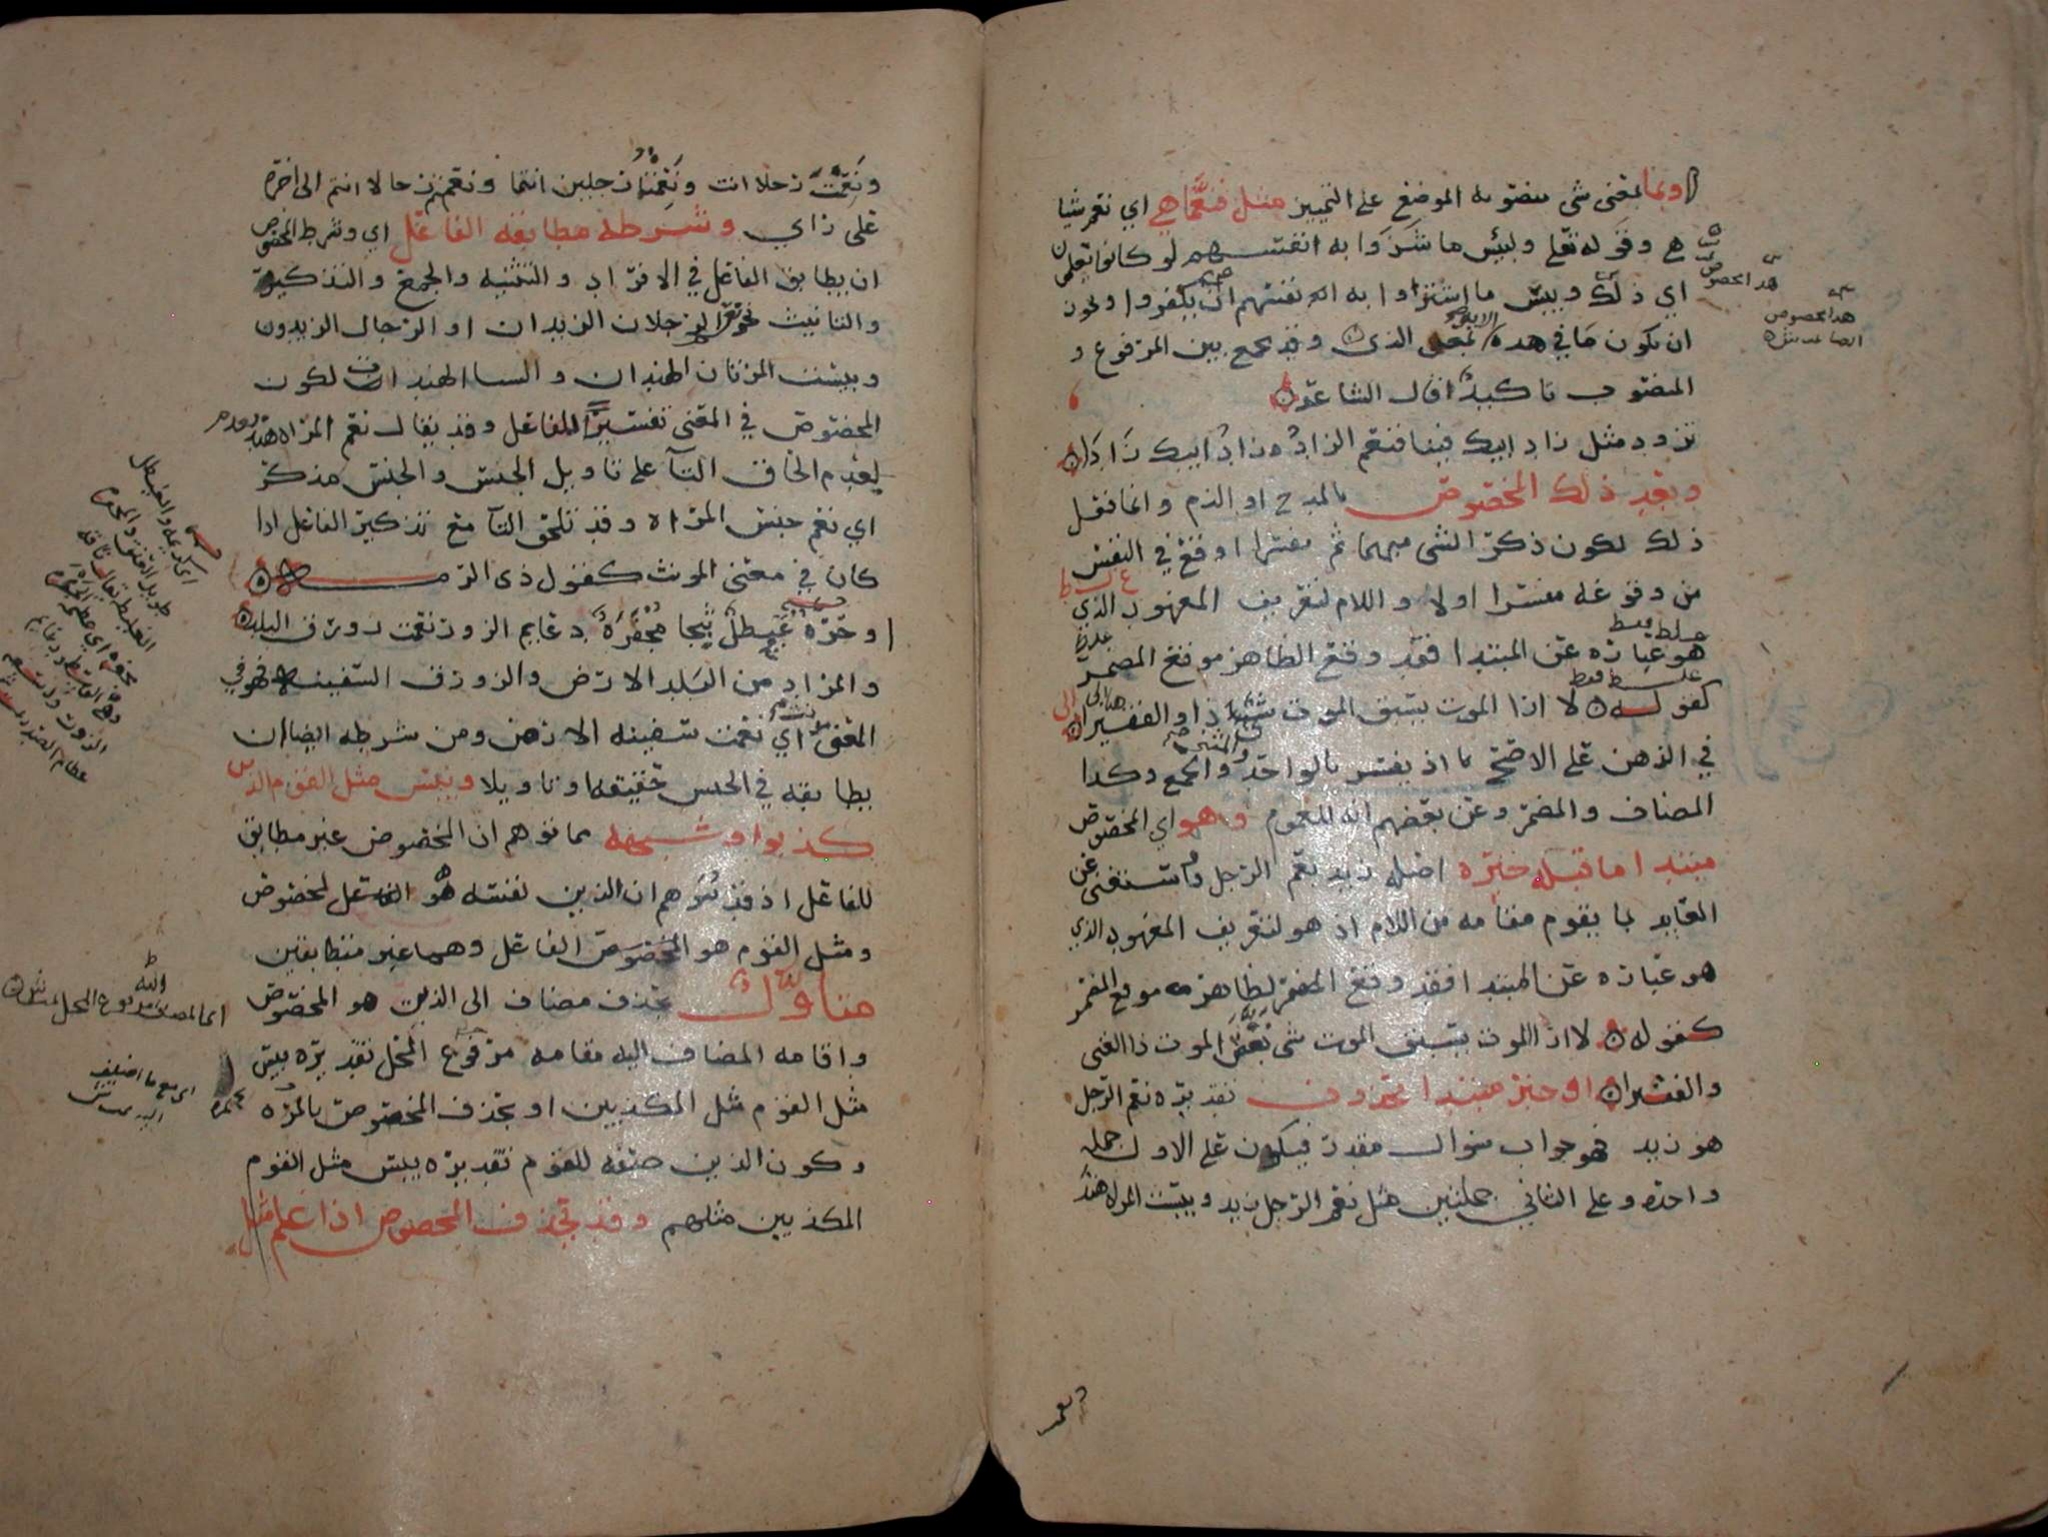 او بما بمعنى شي منصوبه الموضع على التمييز مثل فنعما هي اي نعم شيا
هي وقوله تعلى ولبئس ما شروا به انفسهم لو كانوا يعلمون
اي ذلك وبيس ما اشتروا به انفسهم ان يكفروا ونحون
ان يكون ما في هده الايه بمعنى الذي وقد يجمع بين المرفوع و
المنصوب تاكيدا قال الشاعر
تزود مثل زاد ابيك فينا فنعم الزاد زاد ابيك زادا
وبعد ذلك المخصوص بالمدح او الذم وانما فعل
ذلك لكون ذكر الشي مبهما ثم مفسرا اوقع في النفس
من وقوعه مفسرا اولا واللام لتعريف المعهود الذي
هو عباره عن المبتدا فقد وقع الظاهر موقع المضمر
كقوله لا ارا الموت يسبق الموت شي ذا والفقيرا
في الذهن على الاصح اذ يفسر بالواحد والمثنى والجمع وكذا
المضاف والمضمر وعن بعضهم انه للعموم وهو اي المخصوص
مبتدا ما قبله خبره اصله زيد نعم الرجل واستغنى عن
العايد بما يقوم مقامه من اللام اذ هو لتعريف المعهود الذي
هو عباره عن المبتدا فقد وقع المضمر لظاهره موقع المضمر
كقوله لا ارا الموت يسبق الموت شي نغص الموت ذا الغنى
والفقيرا او خبر مبتدا محذوف تقديره نعم الرجل
هو زيد فهو جواب سوال مقدر فيكون على الاول جمله
واحده وعلى الثاني جملتين مثل نعم الرجل زيد وبيست المراه هند
هذا المخصوص
هذا المخصوص
ونعم
ونعمت رجلا انت ونعمتما رجلين انتما ونعمتم رجالا انتم الى اخره
على راي وشرطه مطابقة الفاعل اي وشرط المخصوص
ان يطابق الفاعل في الافراد والتثنيه والجمع والتذكير
والتانيث نحو نعم الرجلان الزيدان او الرجال الزيدون
وبيست المرتان الهندان والنسا الهندات لكون
المخصوص في المعنى تفسيرا للفاعل وقد يقال نعم المراه هند بعدم
لعدم الحاق التا على تاويل الجنس والجنس مذكر
اي نعم جنس المراة وقد تلحق التا مع تذكير الفاعل اذا
كان في معنى المونث كقول ذي الرمه
او حره عيطل ثبجا مجفره دعايم الزور نعمت زورق البلد
والمراد من البلد الارض والزورق السفينه فهو في
المعنى مونث اي نعمت سفينه الارض ومن شرطه ايضا ان
يطابقه في الجنس حقيقه او تاويلا وبيس مثل القوم الذين
كذبوا وشبهه مما توهم ان المخصوص غير مطابق
للفاعل اذ قد يتوهم ان الذين نفسه هو الفاعل لمخصوص
ومثل القوم هو المخصوص الفاعل وهما غير متطابقين
متاول بحذف مضاف الى الذين هو المخصوص
واقامه المضاف اليه مقامه مرفوع المحل تقديره بيس
مثل القوم مثل المكذبين او بحذف المخصوص بالمره
وكون الذين صفه للقوم تقديره بيس مثل القوم
المكذبين مثلهم وقد يحذف المخصوص اذا علم مثل